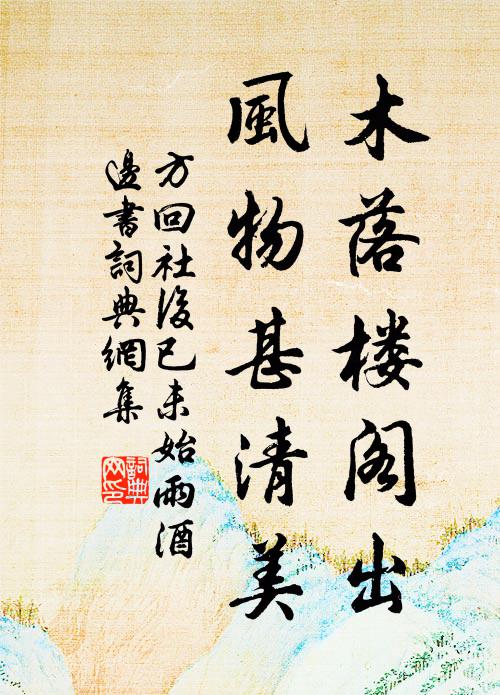 木落楼阁出
風物甚清美
方回社後已未始雨酒
邊書詞典網集
詞典
网印